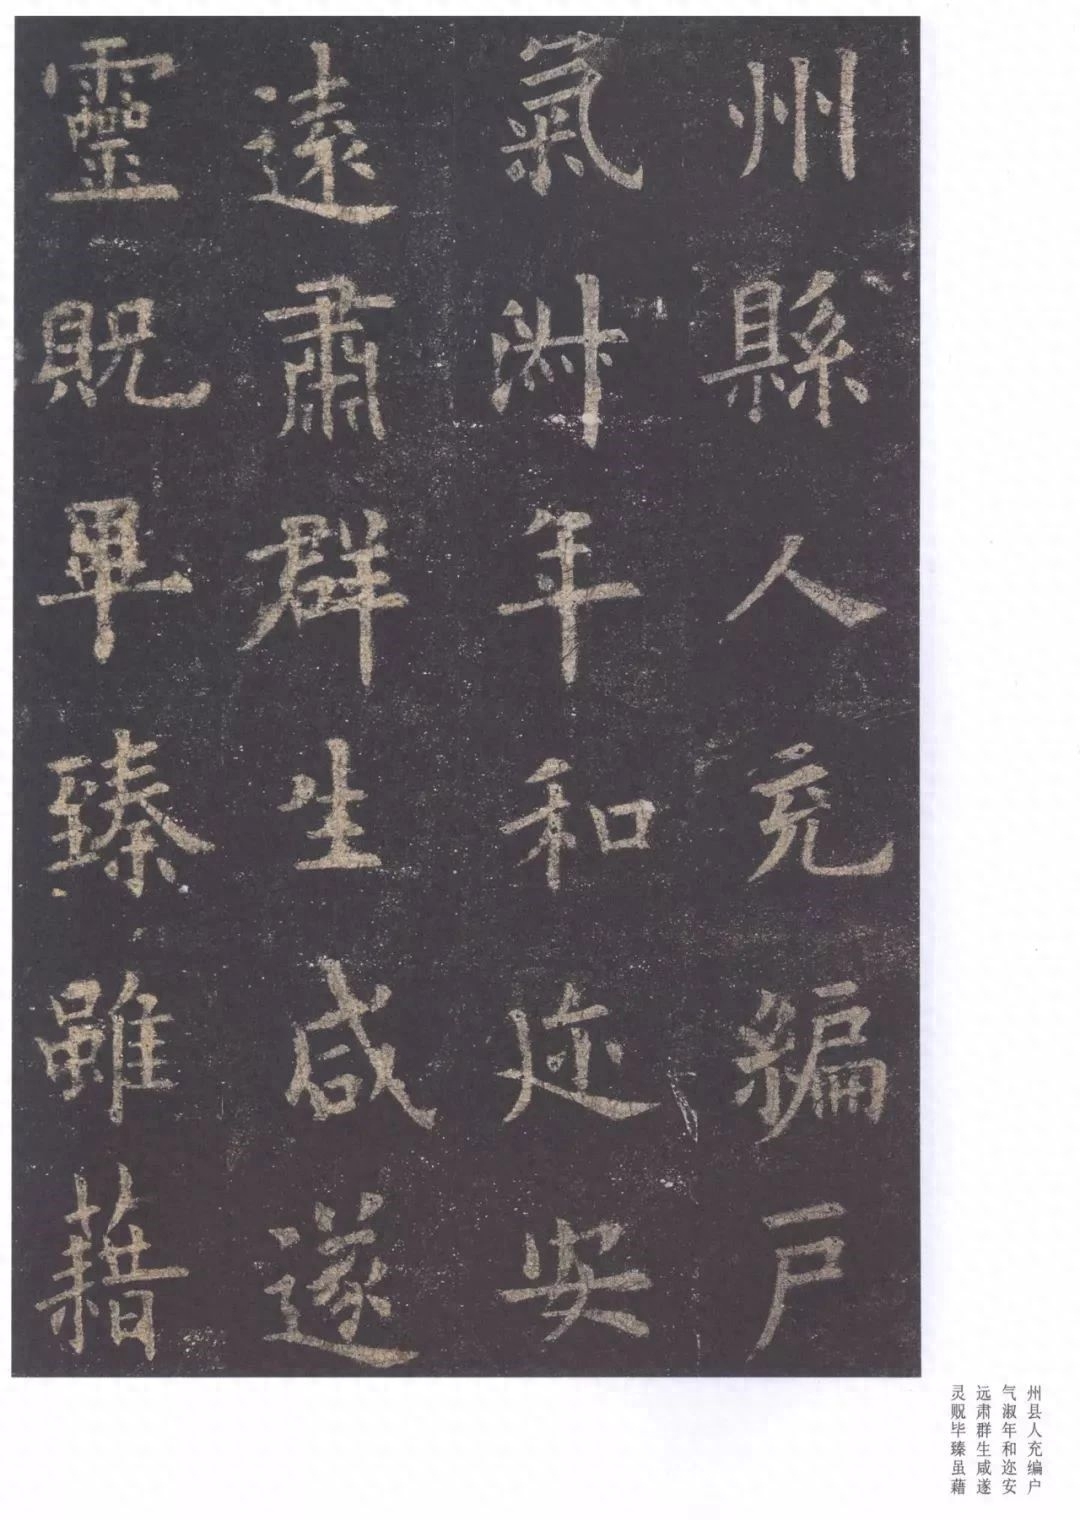 州縣人充編戶
氣淑年和迩安
遠肅群生咸遂
靈貺畢臻雖藉
州县人充编户
气淑年和迩安
远肃群生咸遂
灵贶毕臻虽藉